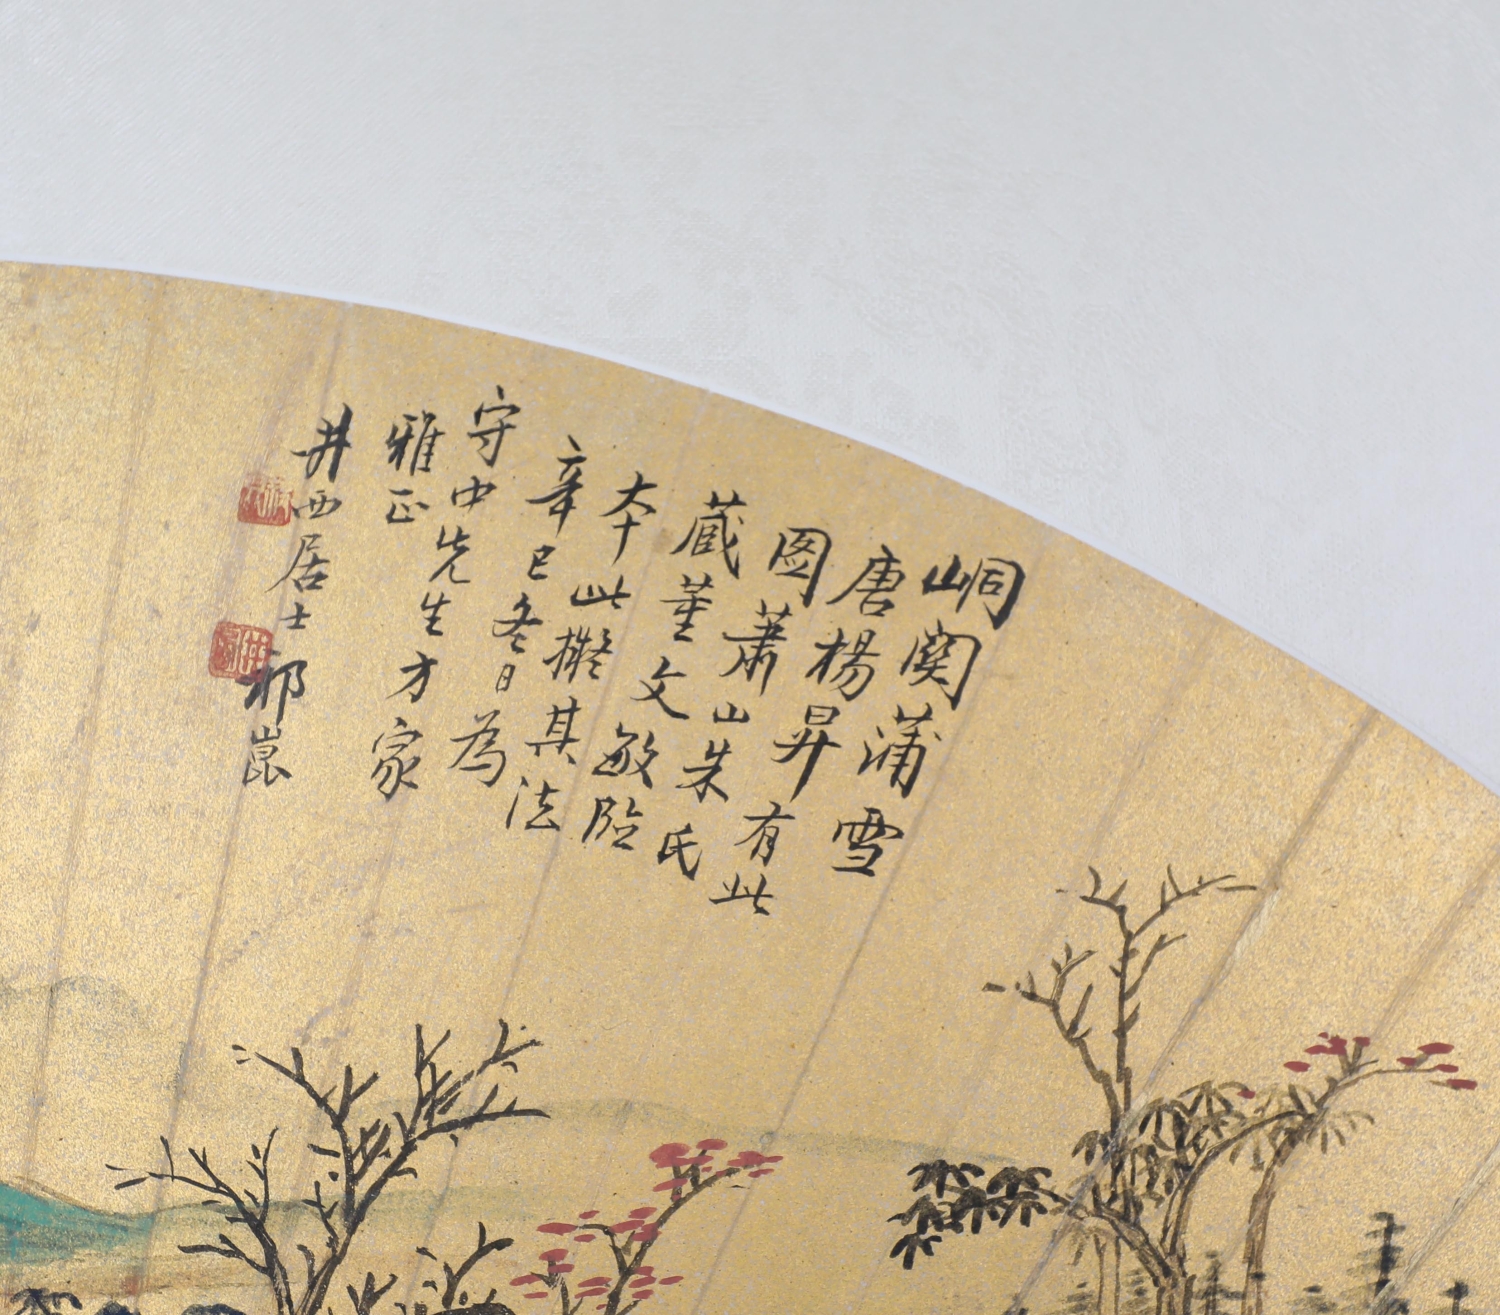 峒関蒲雪
唐楊昇有此
圖蕭山朱氏
蔵董文敏臨
本此擬其法
辛巳冬日為
守中先生方家
雅正
井西居士祁崑